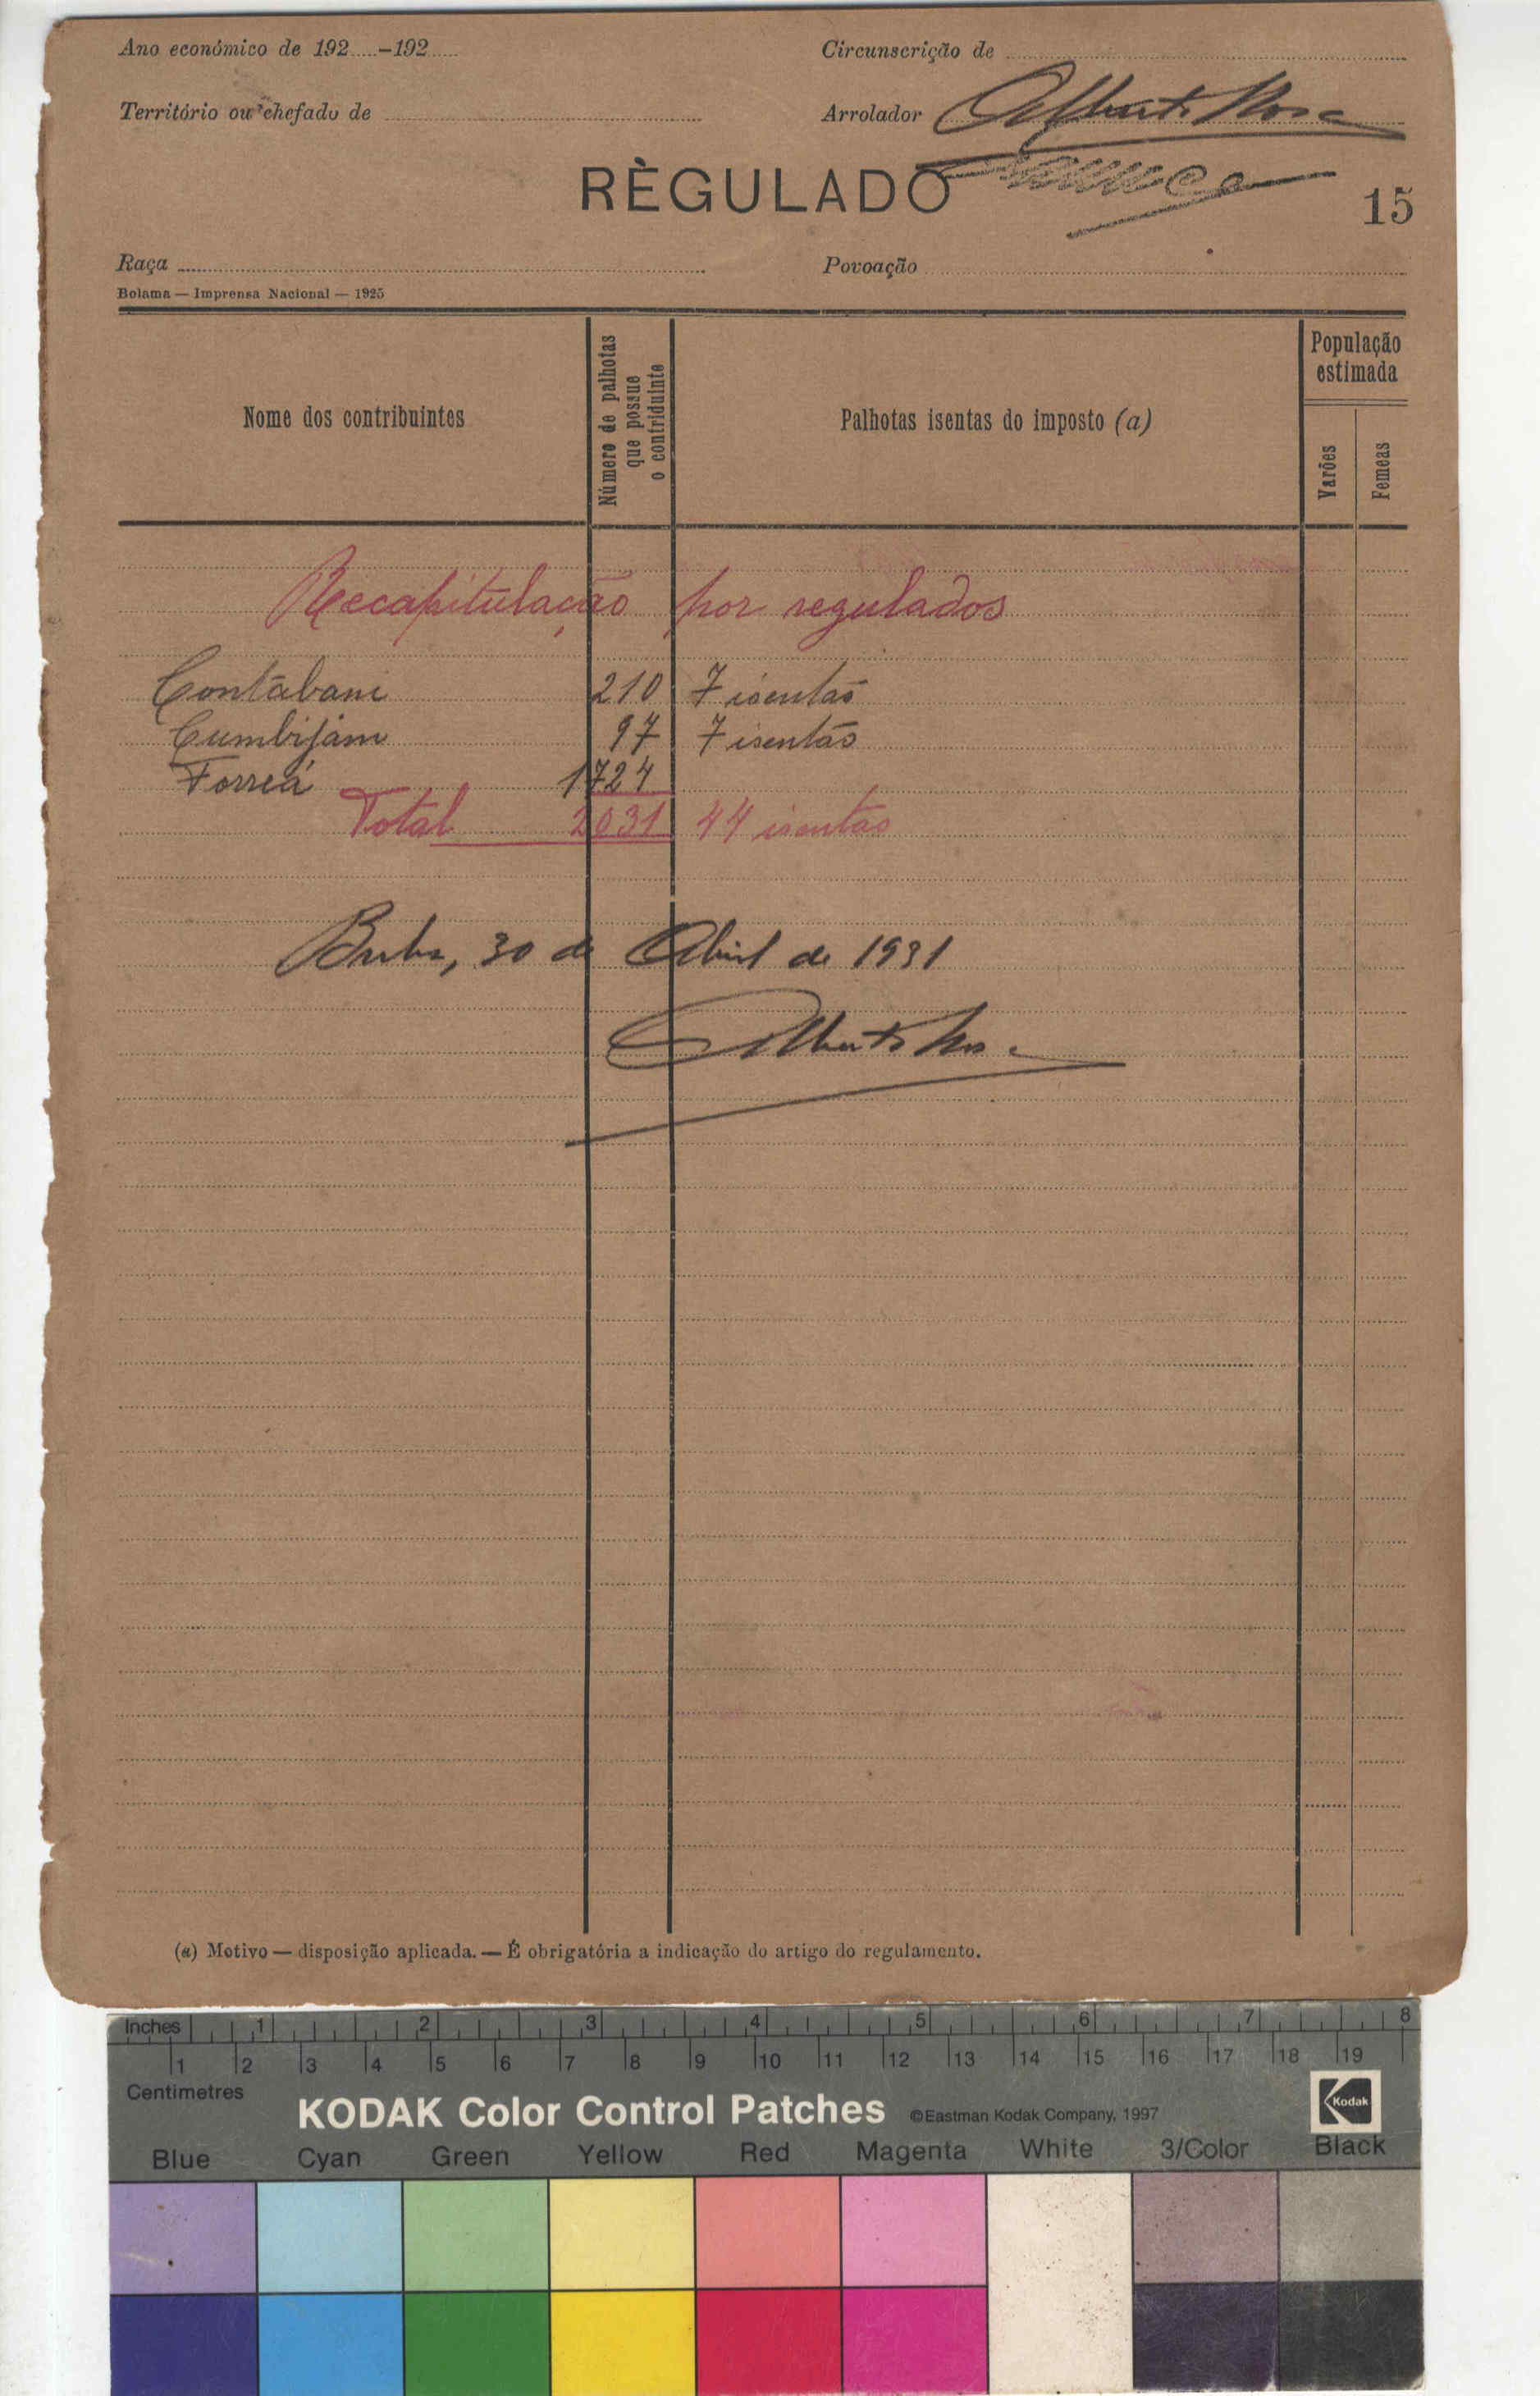 Ano económico de 192....-192.....
Circunscrição de
Território ou chefado de
Arrolador Alberto
RÈGULADO
15
Raça
Povoação
Bolama — Imprensa Nacional — 1925
Nome dos contribuintes
Número de palhotas
que possue
o contriduinte
Palhotas isentas do imposto (a)
População
estimada
Varões
Femeas
Recapitulação por regulados
Contabani 210 7 isentas
Cumbijám 97 7 isentas
Forreá 1724
Total 2031 44 isentas
Buba, 30 de Abril de 1931
Alberto
(a) Motivo — disposição aplicada. — É obrigatória a indicação do artigo do regulamento.
Inches 1 2 3 4 5 6 7 8
1 2 3 4 5 6 7 8 9 10 11 12 13 14 15 16 17 18 19
Centimetres
KODAK Color Control Patches ©Eastman Kodak Company, 1997 Kodak
Blue Cyan Green Yellow Red Magenta White 3/Color Black